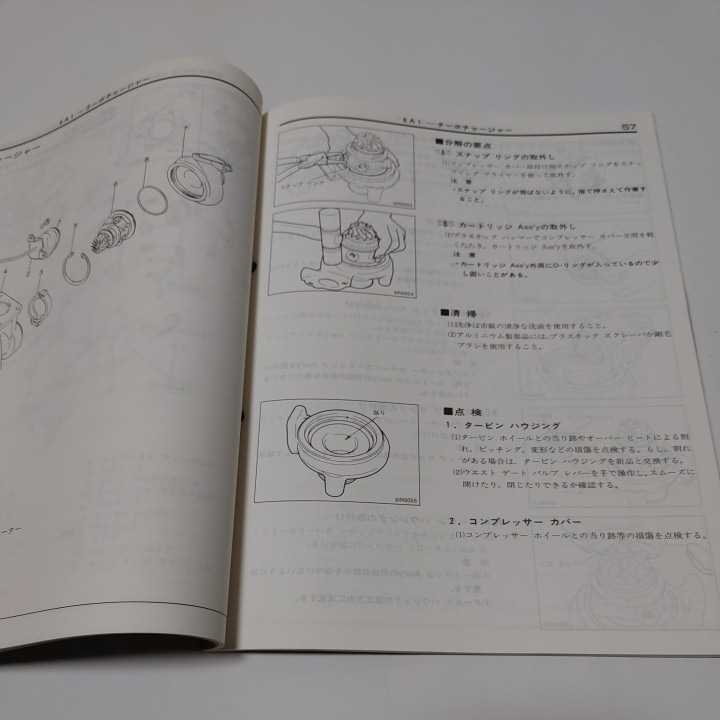 ーチャージャー
6A1 ―ターボチャージャー
6A1 ―ターボチャージャー
57
■分解の要点
スナップ リングの取外し
注意
・スナップ リングが飛ばないように、指で押さえて作業す
ること。
スナップ リング
カートリッジ Ass'yの取外し
(1)プラスチック ハンマーでコンプレッサー カバー全周を軽
くたたき、カートリッジ Ass'yを取外す。
注意
・カートリッジ Ass'y外周にO-リングが入っているので少
し固いことがある。
■清掃
(1)洗浄は市販の清浄な洗油を使用すること。
(2)アルミニウム製部品には、プラスチック スクレーパか剛毛
ブラシを使用すること。
当り
■点検
1. タービン ハウジング
(1)タービン ホイールとの当り跡やオーバー ヒートによる割
れ、ピッチング、変形などの損傷を点検する。もし、割れ
がある場合は、タービン ハウジングを新品と交換する。
(2)ウエスト ゲート バルブ レバーを手で操作し、スムーズに
開けたり、閉じたりできるか確認する。
2. コンプレッサー カバー
(1)コンプレッサー ホイールとの当り跡等の損傷を点検する。